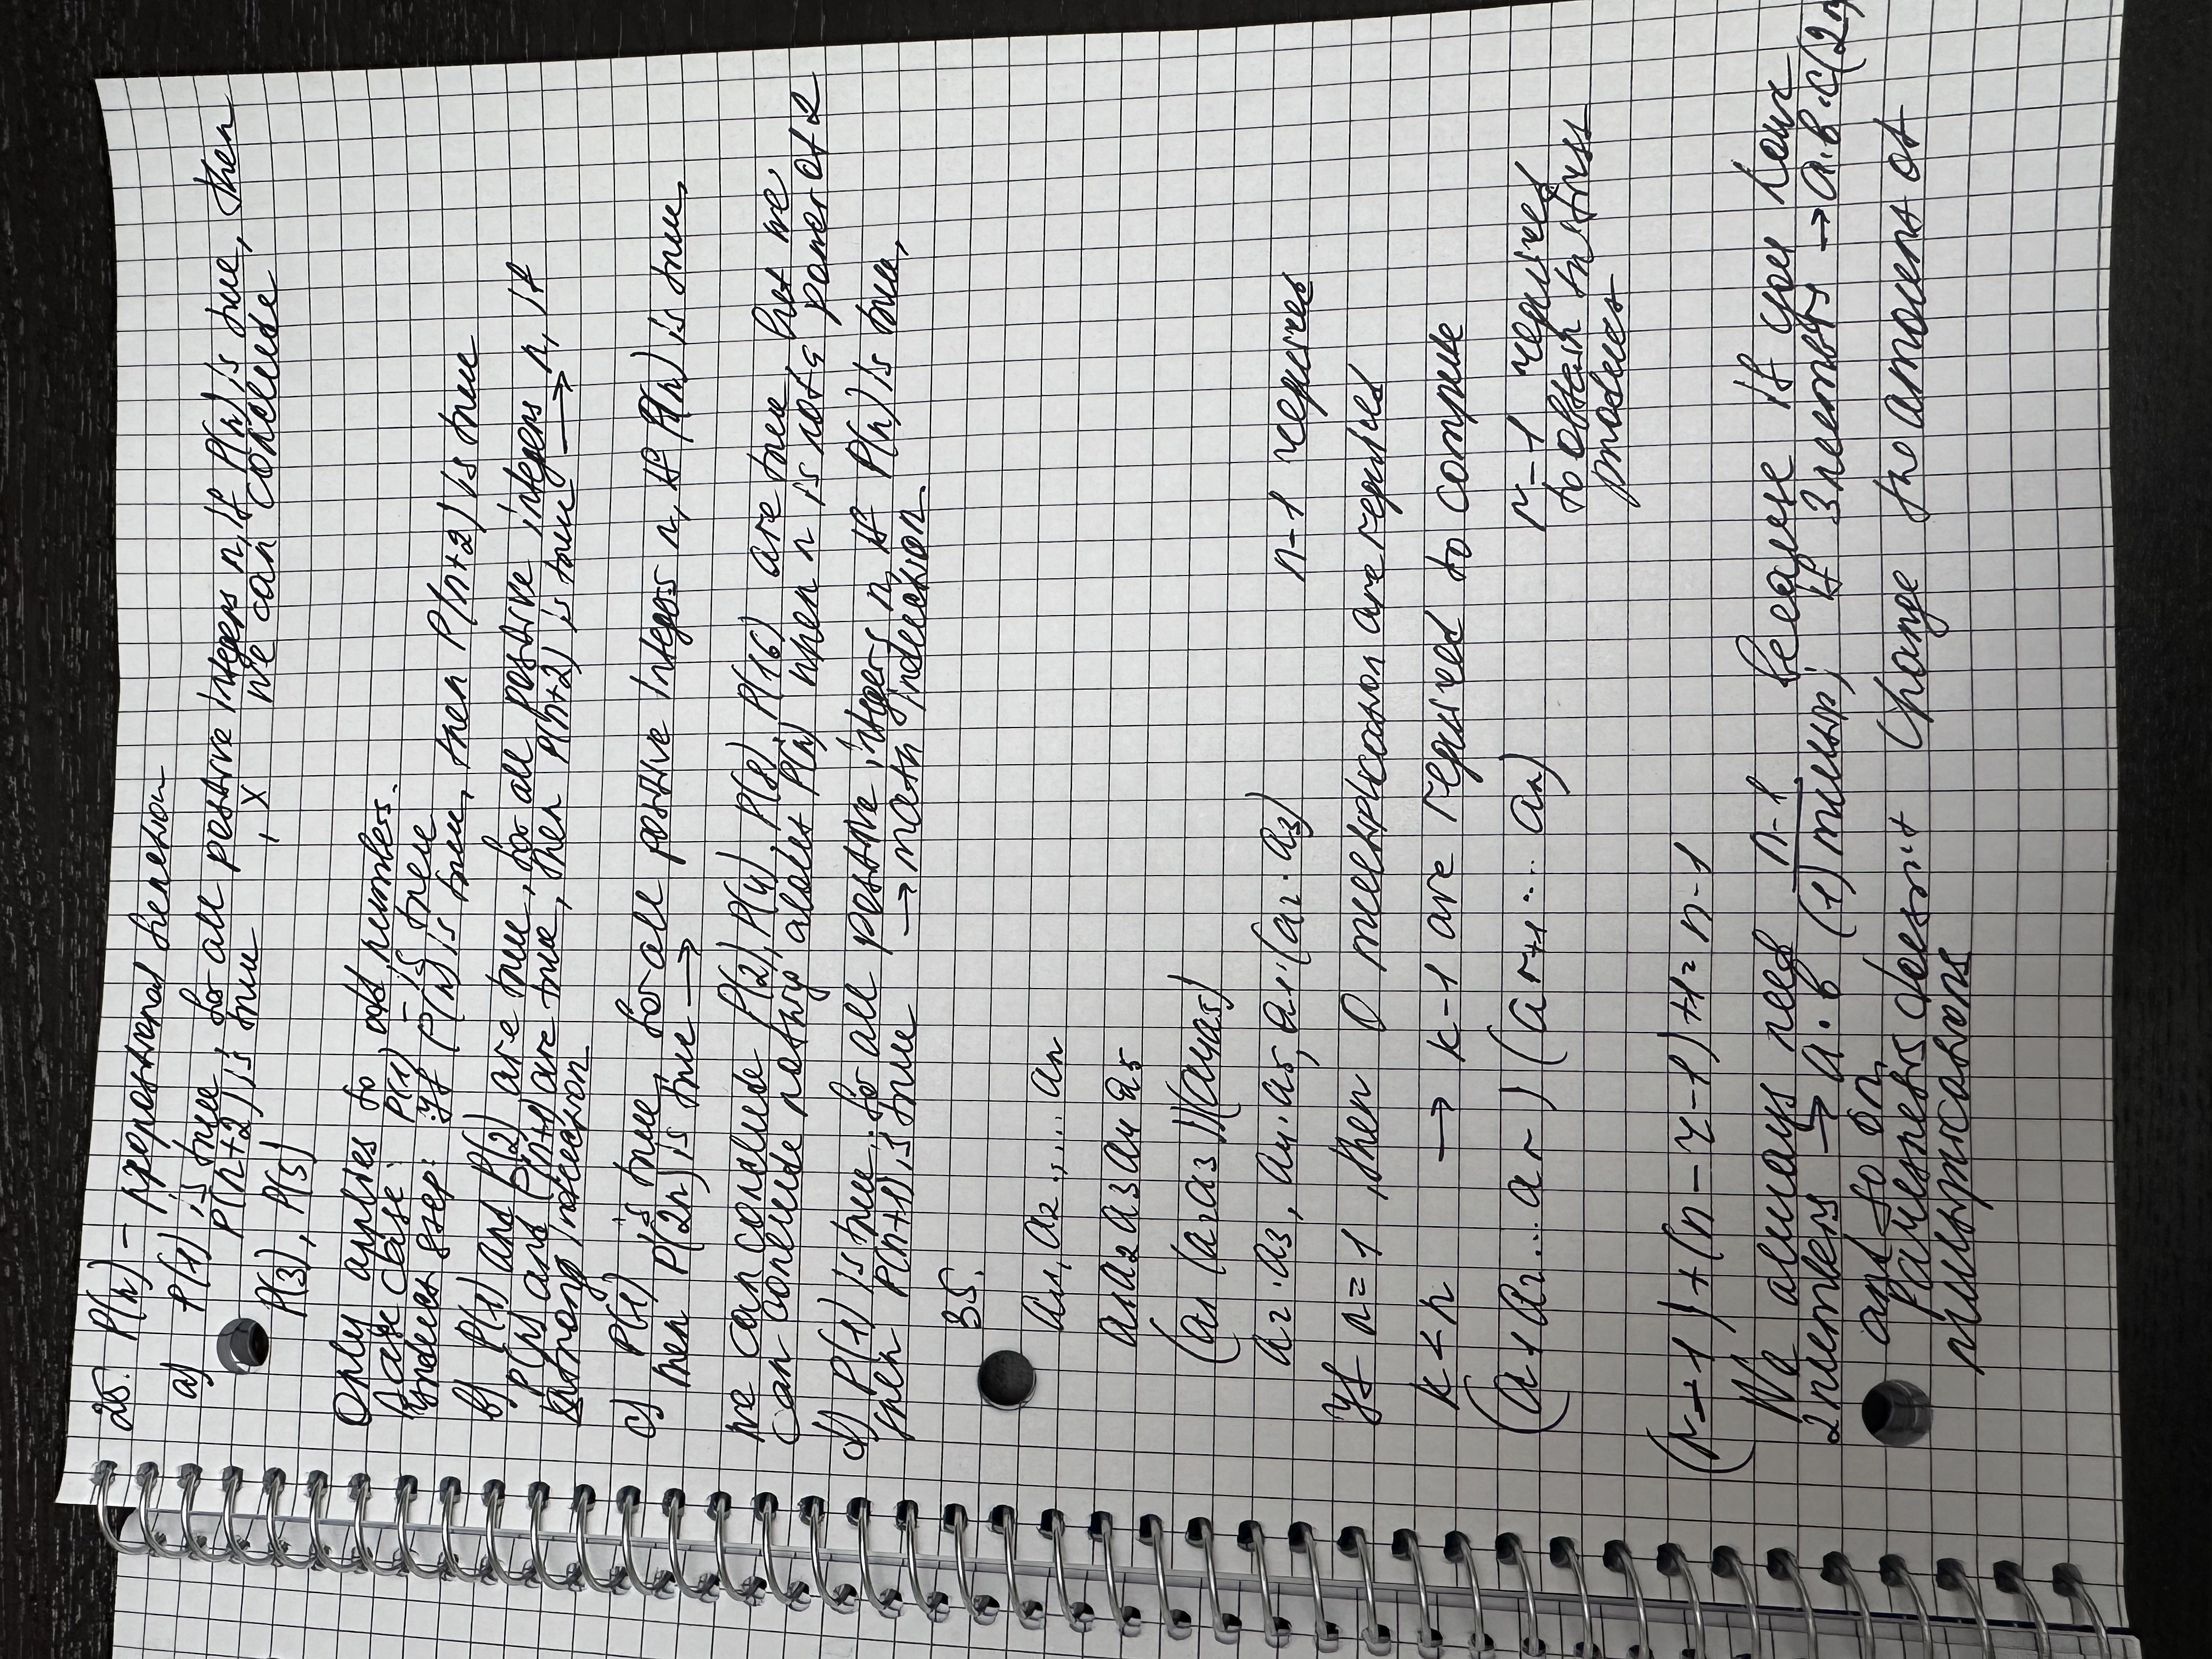 25. P(n) – propositional function
a) P(1) is true, for all positive integers n, if P(n) is true, then
P(n+2) is true , X we can conclude
P(3), P(5)
Only applies to odd numbers.
Base case: P(1) – is true
Induct step: If P(n) is true, then P(n+2) is true
b) P(1) and P(2) are true, for all positive integers n, if
P(n) and P(n+1) are true, then P(n+2) is true →
strong induction
c) P(1) is true, for all positive integers n, if P(n) is true,
then P(2n) is true →
we can conclude P(2), P(4), P(8), P(16) are true, but we
can conclude nothing about P(n) when n is not a power of 2
d) P(1) is true, for all positive integers n, if P(n) is true,
then P(n+1) is true → math induction.
35.
a1, a2 ,.... an
a1a2a3a4a5
(a1(a2a3))(a4a5)
a2·a3, a4·a5, a1·(a2·a3) n-1 required
If n=1, then 0 multiplication are required
k<n → k-1 are required to compute
(a1a2...ar)(ar+1 ... an) r-1 required
to obtain first
product
(r-1)+(n-r-1)+1= n-1
We always need n-1 because if you have
2 numbers → a·b (1) multip; if 3 numbers → a·b·c(2
and so on.
doesn't change the amount of
multiplications